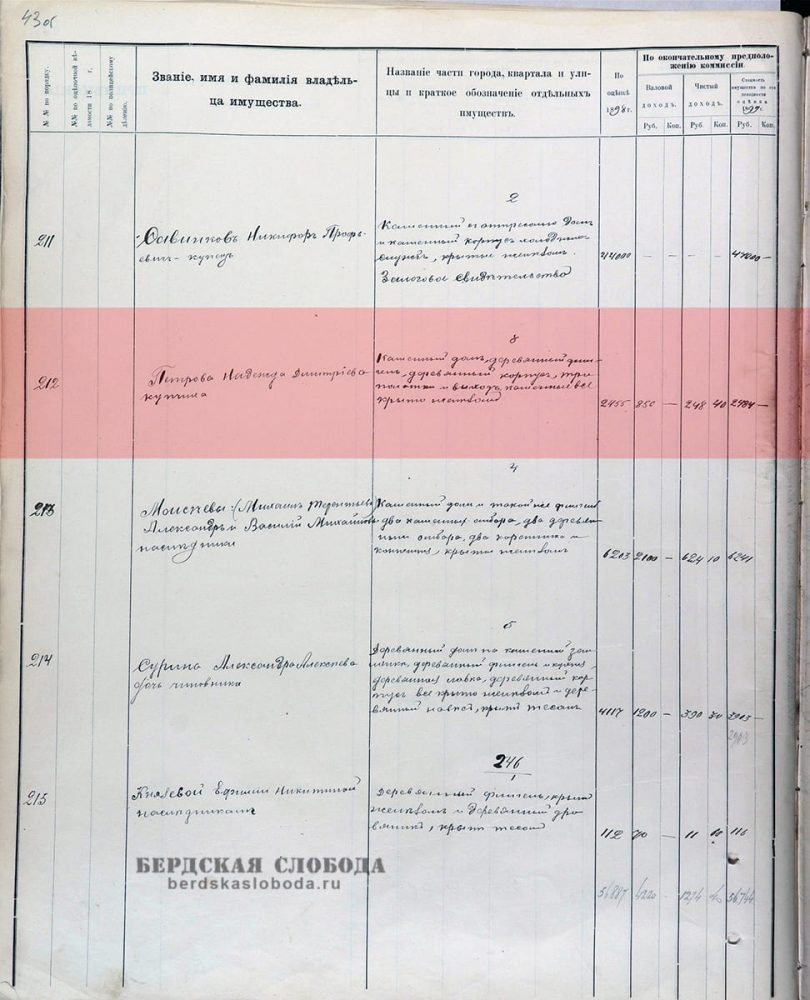 43об
№№ по порядку.
№№ по оцѣночной вѣ-
домости 18 г.
№№ по полицейскому
дѣленію.
Званіе, имя и фамилія владѣль-
ца имущества.
Названіе части города, квартала и ули-
цы и краткое обозначеніе отдѣльныхъ
имуществъ.
По
оцѣнкѣ
1898 г.
По окончательному предполо-
женію комиссіи
Валовой
доходъ.
Чистый
доходъ.
Стоимость
имущества по
доходности
оцѣнка
1899 г.
Руб. Коп. Руб. Коп. Руб. Коп.
2
211 Савинковъ Никифоръ Профь-
евичъ - купецъ
Каменный домъ
и каменный корпусъ холодныхъ
службъ, крытые желѣзомъ.
Залоговое свидѣтельство
44000 — — — — 44000 —
212 Петрова Надежда Дмитріева
купчиха
Каменный домъ, деревянный фли-
гель, деревянный корпусъ, три
полатки и выходъ каменные все
крыто желѣзомъ
2455 850 — 248 40 2484 —
4
213 Моисѣевы: (Михаилъ Терентьевъ)
Александръ и Василій Михайловы
наслѣдники
Каменный домъ и такой же флигель
два каменныхъ амбара, два деревян-
ныхъ амбара, два коретника и
конюшня, крыто желѣзомъ
6203 2100 — 624 10 6241
5
214 Сурина Александра Алексѣева
дочь чиновника
Деревянный домъ на каменной
деревянный флигель и кухня,
деревянная лавка, деревянный кор-
пусъ все крыто желѣзомъ и дере-
вянный навѣсъ, крытъ тесомъ
4117 1200 — 390 30 3903 —
2903
246
1
215 Князевой Ефиміи Никитиной
наслѣдникамъ
Деревянный флигель, крытъ
желѣзомъ и деревянный дро-
вяникъ, крытъ тесомъ
112 70 — 11 116
56887 4220 — 1274 56744
БЕРДСКАЯ СЛОБОДА
berdskasloboda.ru